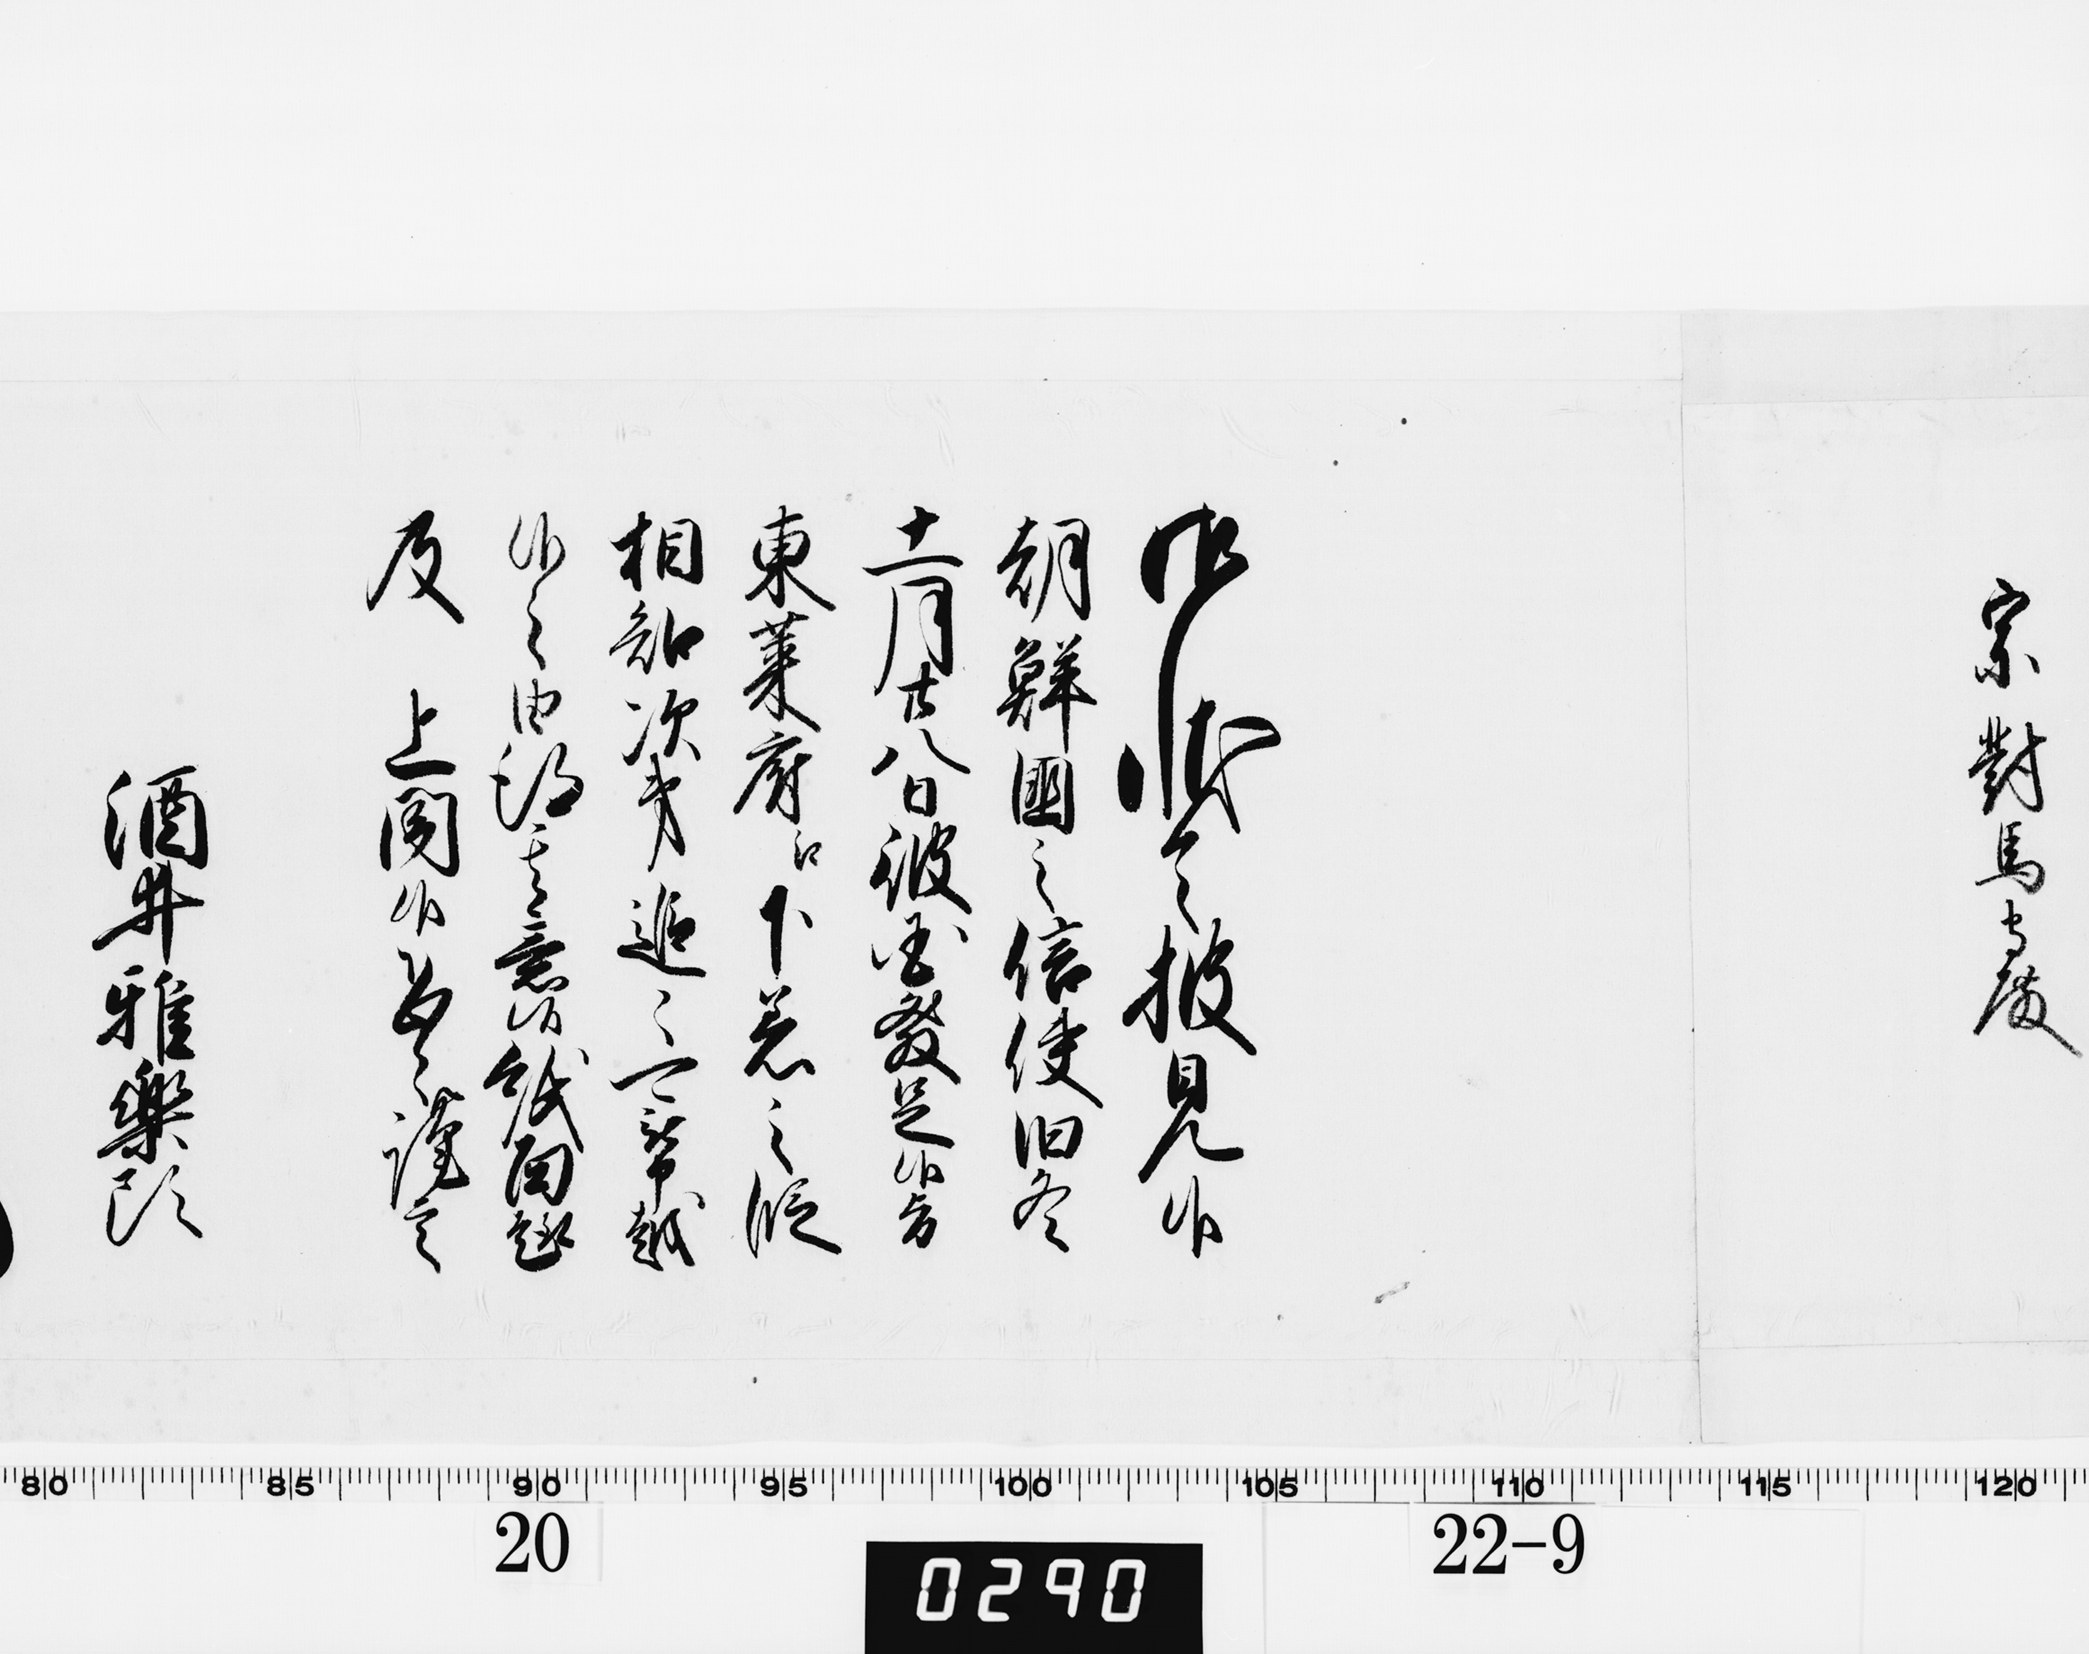 宗對馬守殿
御状令披見候
朝鮮國之信使旧冬
十一月廿八日彼地發足候而
東莱府江下着之段
相知次第追々可幣越
候之由得其意候紙面趣
及　上聞候恐々謹言
酒井雅樂頭
80 85 90 95 100 105 110 115 120
20
22-9
0290